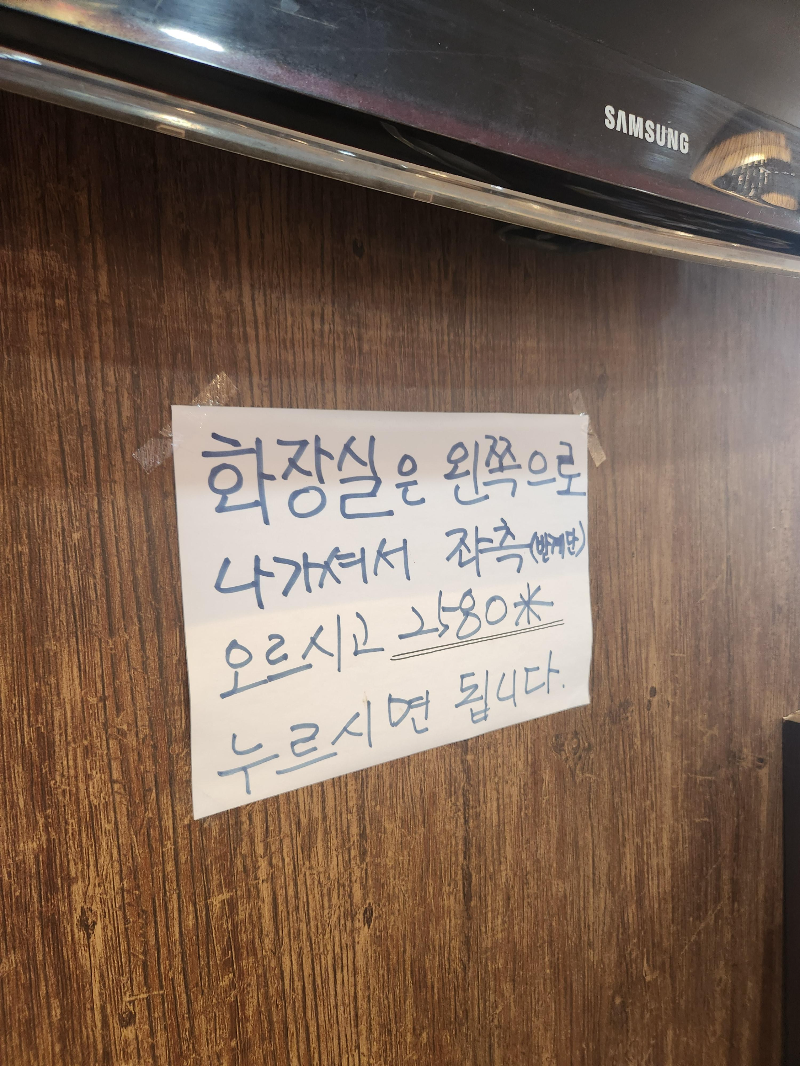 SAMSUNG
화장실은 왼쪽으로
나가셔서 좌측(반계단)
오르시고 2580*
누르시면 됩니다.